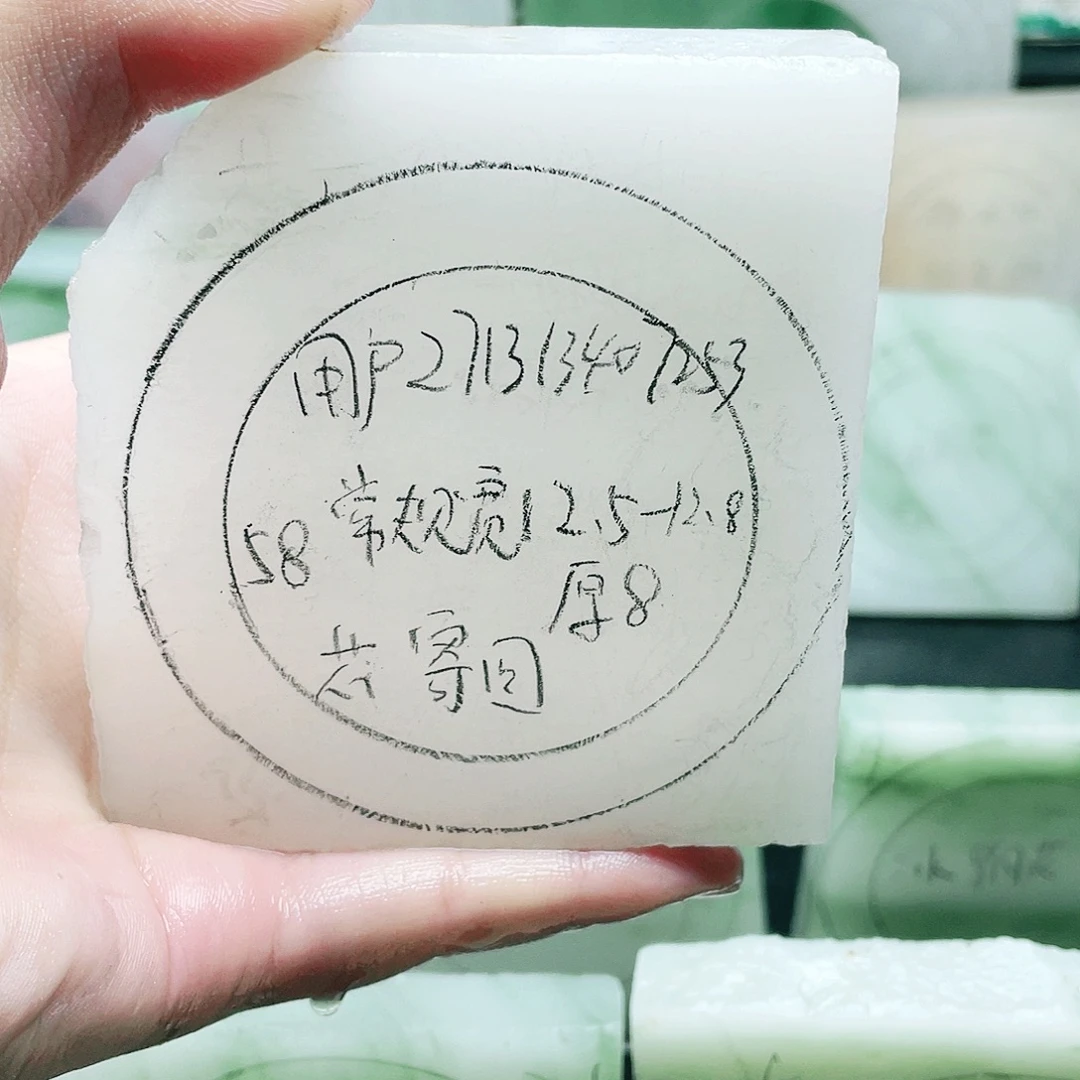 用户271313407253
58 常规宽12.5-12.8
厚8
芯 寄回